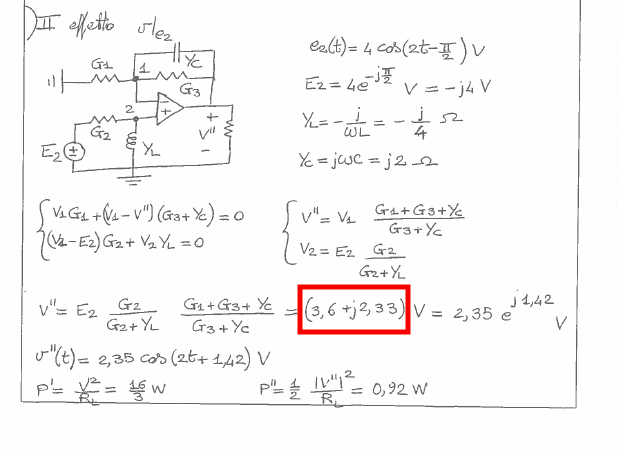 II effetto v/e2
G1 1 YC
G3
2
G2 + V" -
E2 YL
e2(t) = 4 cos(2t - π/2) V
E2 = 4e^{-jπ/2} V = -j4 V
YL = - j/ωL = - j/4 Ω
YC = jωC = j2 Ω
V1G1 + (V1 - V")(G3 + YC) = 0
(V2 - E2)G2 + V2 YL = 0
V" = V1 (G1 + G3 + YC)/(G3 + YC)
V2 = E2 G2/(G2 + YL)
V" = E2 G2/(G2 + YL) (G1 + G3 + YC)/(G3 + YC) = (3,6 + j2,33) V = 2,35 e^{j1,42} V
v"(t) = 2,35 cos(2t + 1,42) V
P' = V²/RL = 16/3 W P" = 1/2 |V"|²/RL = 0,92 W